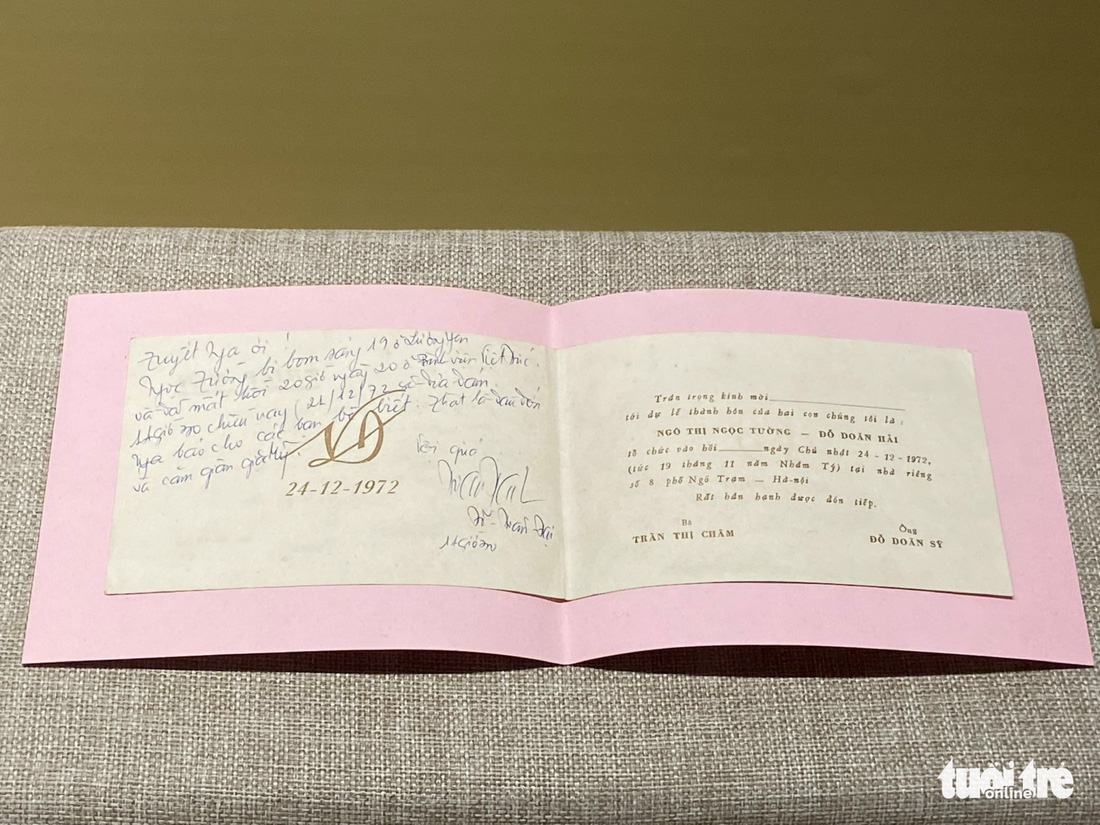 Tuyết Nga ơi!
Ngọc Tường bị bom sáng 19 ở Lương Yên
và đã mất hồi 20 giờ ngày 20 ở Việt Đức.
giờ chiều nay (21/12/72) sẽ đưa đám.
Nga báo cho các bạn bè biết. Thật là đau đớn
và căm giận giặc Mỹ.
Vội quá
24-12-1972
Trân trọng kính mời
tới dự lễ thành hôn của hai con chúng tôi là :
NGÔ THỊ NGỌC TƯỜNG — ĐỖ DOÃN HẢI
tổ chức vào hồi ngày Chủ nhật 24 - 12 - 1972,
(tức 19 tháng 11 năm Nhâm Tý) tại nhà riêng
số 8 phố Ngõ Trạm — Hà-nội
Rất hân hạnh được đón tiếp.
Bà
TRẦN THỊ CHÂM
Ông
ĐỖ DOÃN SỸ
tuổi trẻ
online